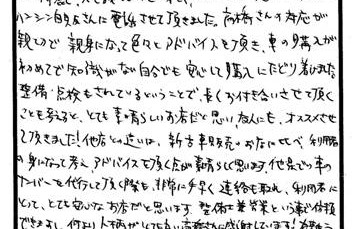 ハンシン自友さんに電話させて頂きました。高橋さんの対応が
親切で 親身になって色々とアドバイスを頂き、車の購入が
初めてで知識がない自分でも安心して購入にたどり着けました
整備・点検もされているということで、長くお付き合いさせて頂く
ことも考ると、とても素晴らしいお店だと思い、友人にも、オススメさせ
て頂きました!他店との違いは、新古車販売のお店に比べ、利用者
の身になって考え、アドバイスを頂く点が素晴らしく思います。他県での車の
ナンバーも代行して頂く際も、非常に手早く連絡も取れ、利用者に
とって、とても良いなお店だと思います。整備士兼営業という事で信頼
できますし、何より人柄がとても良い高橋さんに感謝しています!